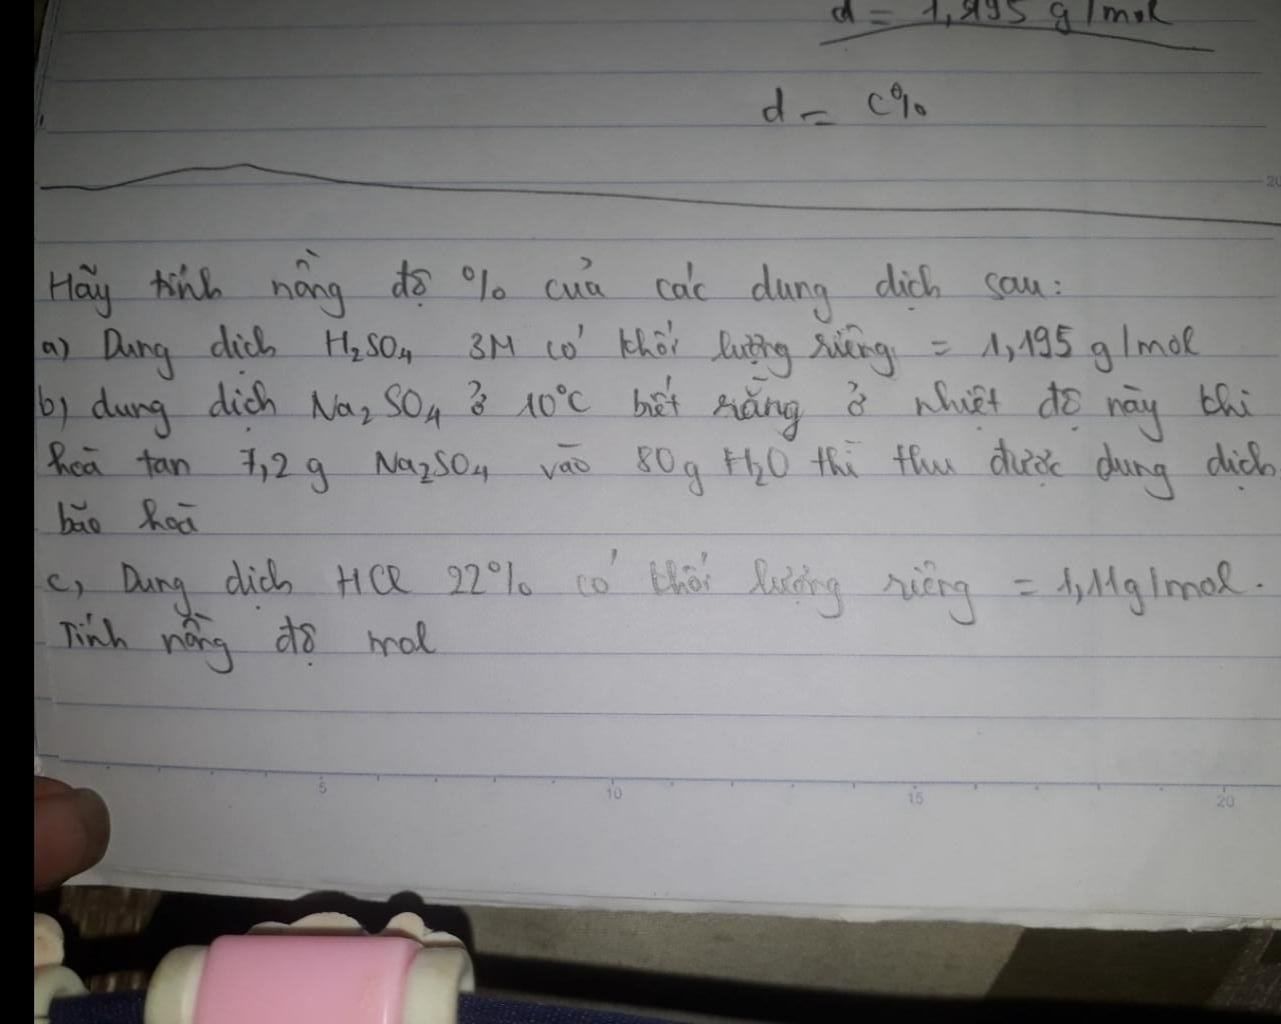 d = 1,195 g/mol
d = C%
20
Hãy tính nồng độ % của các dung dịch sau:
a) Dung dịch H₂SO₄ 3M có khối lượng riêng = 1,195 g/mol
b) dung dịch Na₂SO₄ ở 10°C biết rằng ở nhiệt độ này khi
hoà tan 7,2 g Na₂SO₄ vào 80g H₂O thì thu được dung dịch
bão hoà
c) Dung dịch HCl 22% có khối lượng riêng = 1,11g/mol.
Tính nồng độ mol
5 10 15 20